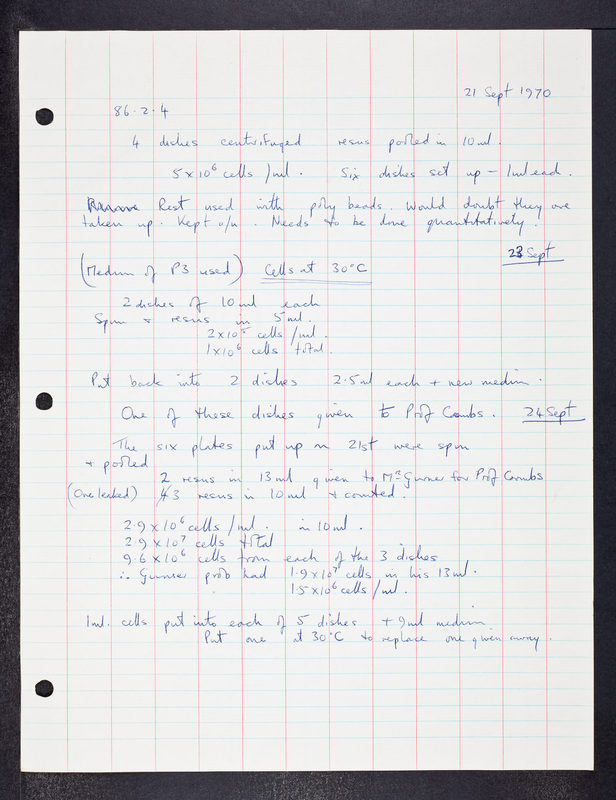 21 Sept 1970
86.2.4
4 dishes centrifuged resus pooled in 10ml.
5x10⁶ cells/ml. Six dishes set up - 1ml each.
Rest used with poly beads. Would doubt they are
taken up. Kept o/n. Needs to be done quantitatively.
23 Sept
(Medium of P3 used) Cells at 30°C
2 dishes of 10ml each
Spun & resus in 5ml.
2x10⁵ cells/ml.
1x10⁶ cells total.
Put back into 2 dishes 2.5ml each + new medium.
One of these dishes given to Prof Coombs. 24 Sept
The six plates put up on 21st were spun
& pooled
2 resus in 13ml given to Mr Gurner for Prof Coombs
(One leaked) 3 resus in 10ml & counted.
2.9x10⁶ cells/ml. in 10ml.
2.9x10⁷ cells total
9.6x10⁶ cells from each of the 3 dishes
∴ Gurner prob had 1.9x10⁷ cells in his 13ml.
1.5x10⁶ cells/ml.
1ml. cells put into each of 5 dishes + 9ml medium
Put one at 30°C to replace one given away.